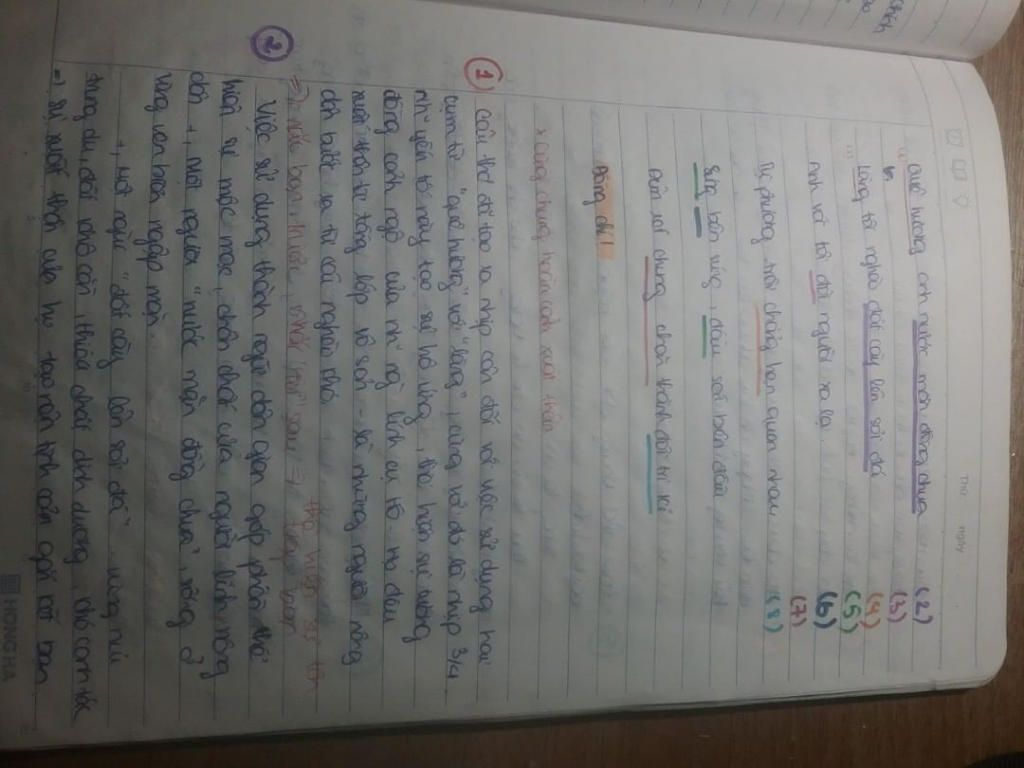 Thứ
ngày
Quê hương anh nước mặn đồng chua (2)
(3)
Làng tôi nghèo đất cày lên sỏi đá (4)
(5)
Anh với tôi đôi người xa lạ (6)
(7)
Tự phương trời chẳng hẹn quen nhau (8)
Súng bên súng, đầu sát bên đầu
Đêm rét chung chăn thành đôi tri kỉ
Đồng chí!
* Cùng chung hoàn cảnh xuất thân
① Câu thơ đã tạo ra nhịp cân đối với việc sử dụng hai
cụm từ "quê hương" và "làng", cùng với đó là nhịp 3/4
những yếu tố này tạo sự hô ứng, thể hiện sự tương
đồng cảnh ngộ của những người lính cụ Hồ. Họ đều
xuất thân từ tầng lớp vô sản - là những người nông
dân bước ra từ cái nghèo khó
=>
② Việc sử dụng thành ngữ dân gian góp phần thể
hiện sự mộc mạc, chân chất của người lính nông
dân +, Một người "nước mặn đồng chua", sống ở
vùng ven biển ngập mặn.
+, Một người "đất cày lên sỏi đá" vùng núi
trung du, đất khô cằn, thiếu chất dinh dưỡng, khó canh tác
=> Sự xuất thân của họ tạo nên tình cảm gắn bó ban
HONG HA